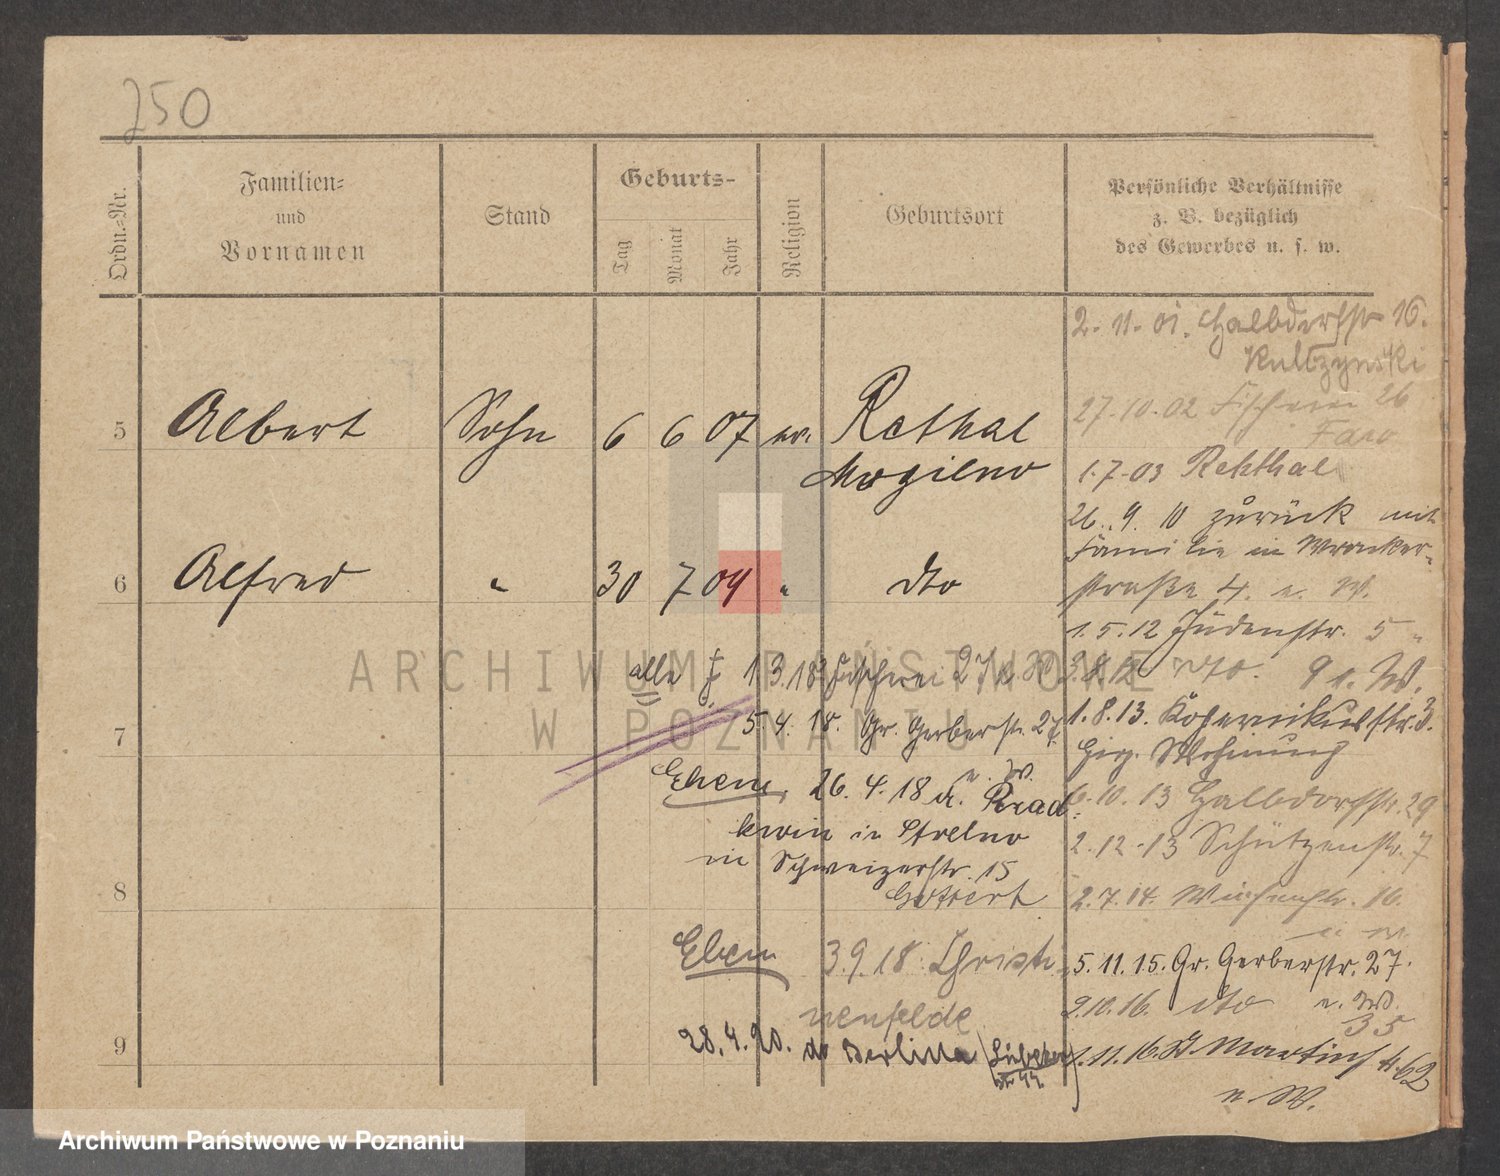 250
Ordn.-Nr.
Familien-
und
Vornamen
Stand
Geburts-
Tag
Monat
Jahr
Religion
Geburtsort
Persönliche Verhältnisse
z. B. bezüglich
des Gewerbes u. s. w.
2. 11. 01. Halbdorfstr 16.
27.10.02 Fischerei 26
1.7.03 Rekthal
5 Albert Sohn 6 6 07 ev. Rethal
Mogilno
26. 9. 10 zurück mit
Familie in Wronker-
straße 4. u. W.
6 Alfred " 30 7 09 " dto
1. 5. 12 Judenstr. 5 "
alle 1 3. 18 Fischerei 27
3.8.12 dto. 9 u. W.
7
5. 4. 18. Gr. Gerberstr. 27
u. W.
1. 8. 13. Kopernikusstr. 3.
Eig. Wohnung
Ehem. 26. 4. 18 u. Prad
kwin in Strelno
in Schweizerstr. 15
6. 10. 13 Halbdorfstr. 29
2. 12. 13 Schützenstr. 7
8
2. 7. 14. 16.
Ehem 3 9. 18 Christi
nenfelde
5. 11. 15. Gr. Gerberstr. 27.
2.10.16. dto u. W.
35
9
28. 4. 20. do Berlina
1. 11. 16. St Martinst 62
u. W.
ARCHIWUM PAŃSTWOWE
W POZNANIU
Archiwum Państwowe w Poznaniu